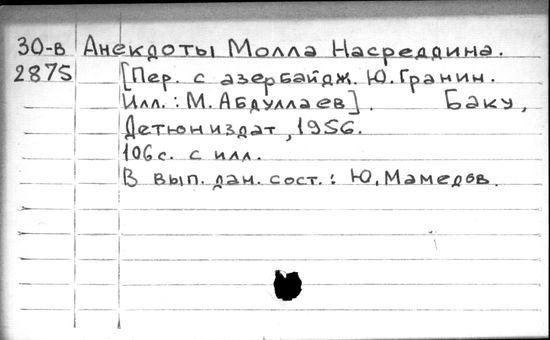 30-в Анекдоты Молла Насреддина.
2875 [Пер. с азербайдж. Ю. Гранин.
Илл.: М. Абдуллаев]. Баку,
Детюниздат, 1956.
106 с. с илл.
В вып. дан. сост.: Ю. Мамедов.